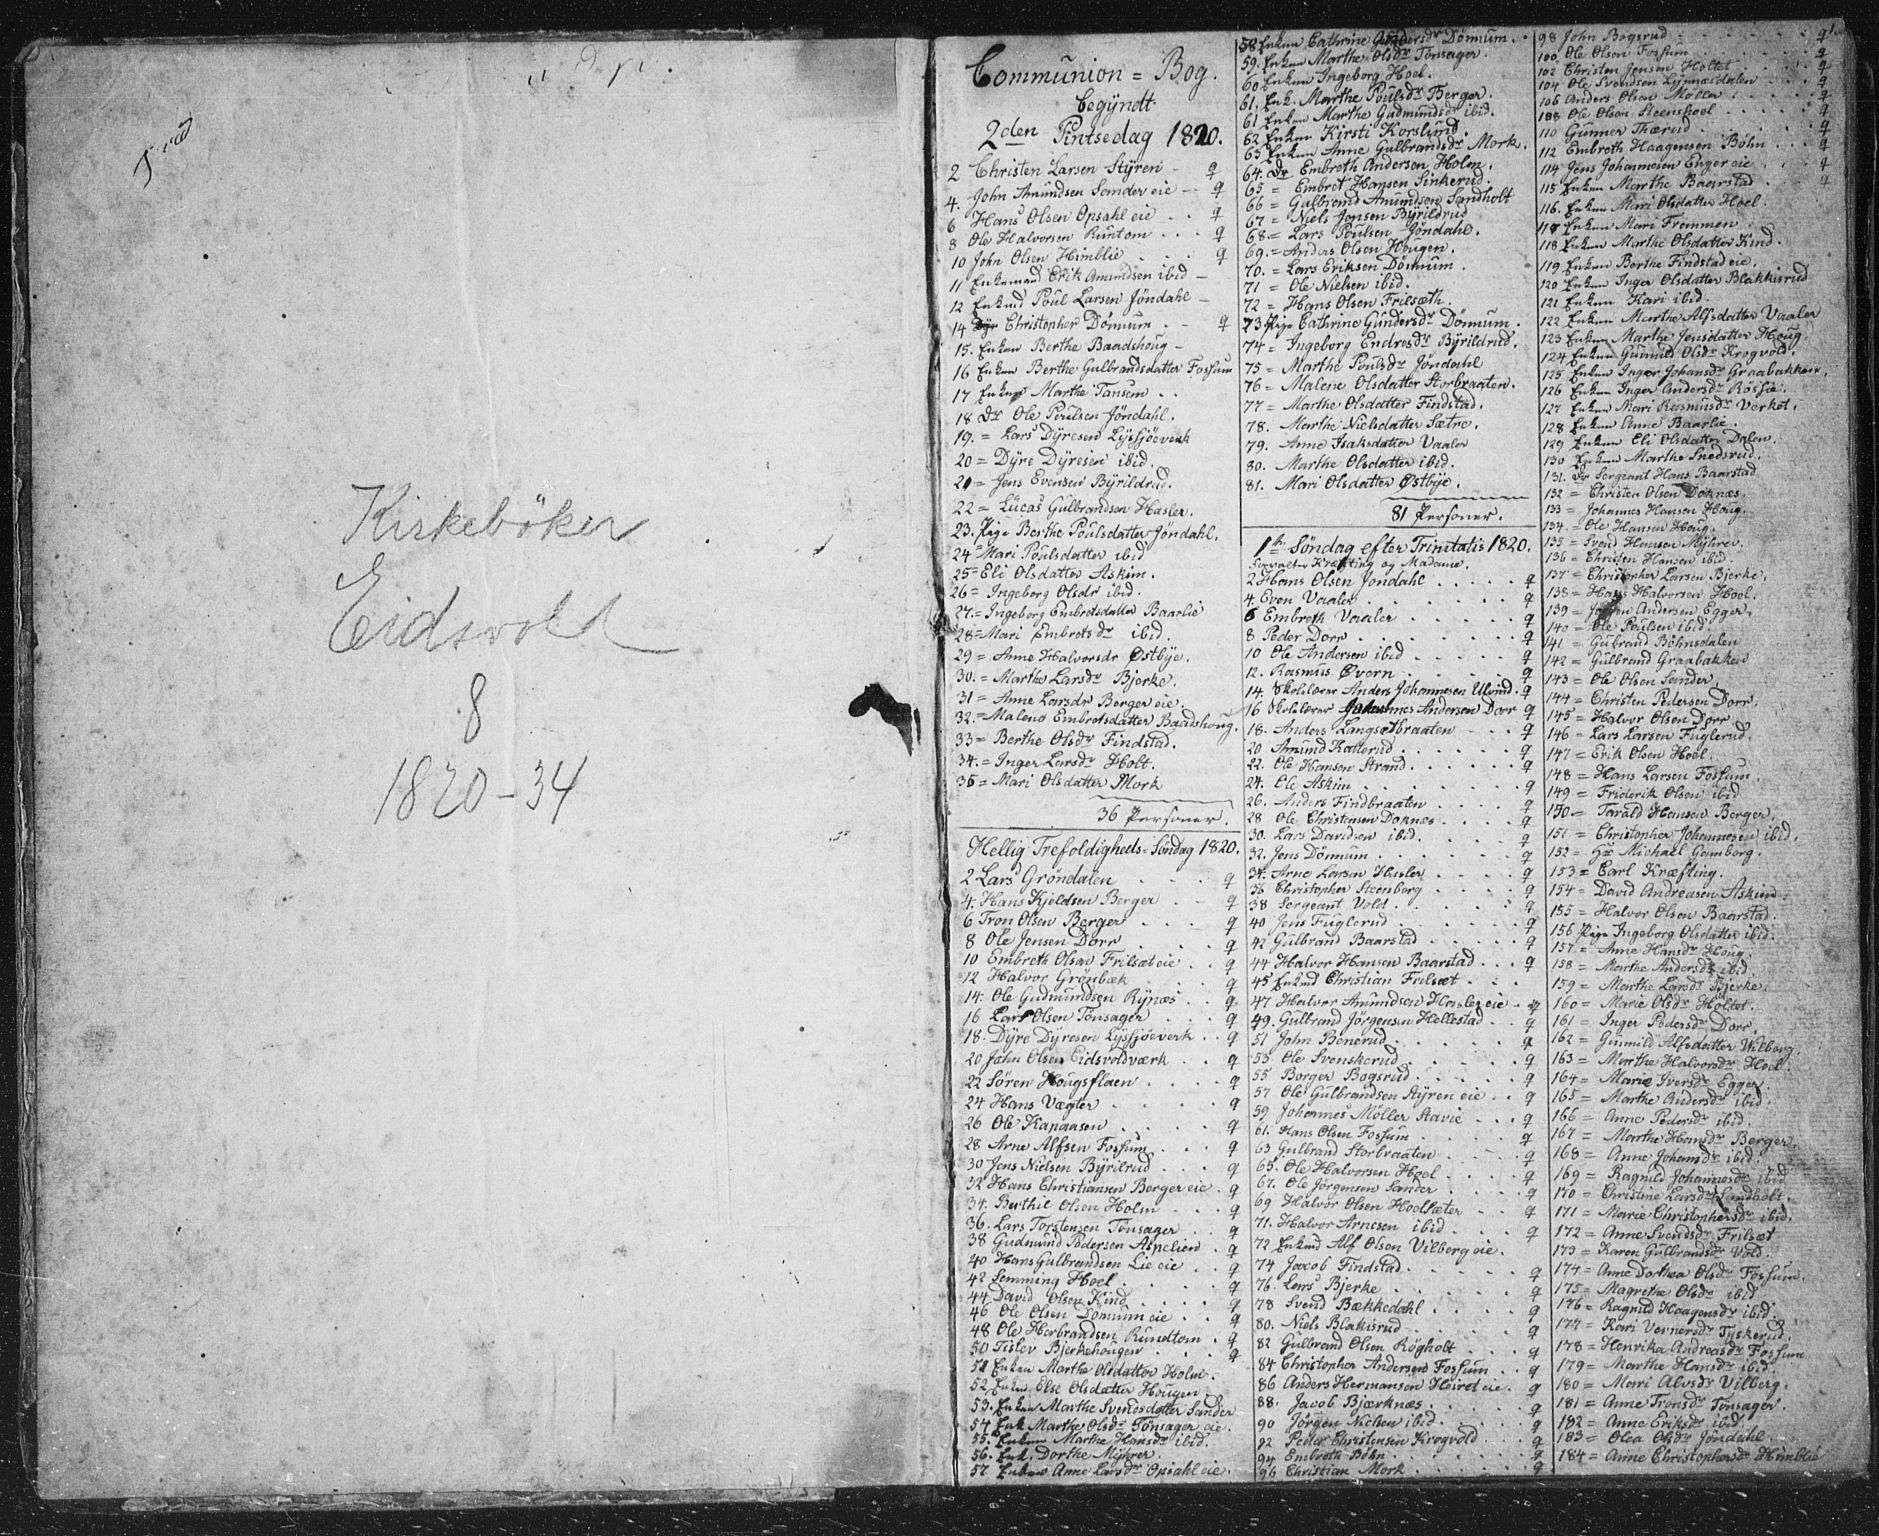 Kirkebøker
Eidsvold
8
1820-34
Communion = Bog.
begÿndt
2den Pintsedag 1820.
2 Christen Larsen Stÿren - q
4. John Amundsen Sander eie - - q
6 Hans Olsen Opsahl eie . . q
8 Ole Halvorsen Runtom . . . q
10 John Olsen Himblie . . . q
11 Enkemand Erik Amundsen ibid -
12 Enkmd Poul Larsen Jøndahl -
14 Christopher Dønnum . - q
15. Enken Berthe Baadshoug -
16 Enken Berthe Gulbrandsdatter Fossum
17 Enken Marthe Tansem . .
18 Dr Ole Poulsen Jøndahl.
19. = Lars Dÿresen Lÿsjøeverk
20 = Dÿre Dÿresen ibid.
21 = Jens Evensen Bÿrildrud.
22 = Lücas Gulbrandsen Hasler.
23. Pige Berthe Poulsdatter Jøndahl.
24 = Mari Poulsdatter ibid
25 = Eli Olsdatter Askim.
26 = Ingeborg Olsdr ibid.
27. = Ingeborg Embretsdatter Baarlie
28 = Mari Embretsdr ibid.
29 = Anne Halvorsdr Østbÿe.
30. = Marthe Larsdr Bjerke.
31 = Anne Larsdr Berger eie.
32. = Malene Embretsdatter Baadshoug.
33 = Berthe Olsdr Findstad.
34. = Inger Larsdr Holt.
36 = Mari Olsdatter Mork
36 Personer.
Hellig Trefoldigheds-Søndag 1820.
2 Lars Grøndalen . . . q
4. Hans Kjeldsen Berger . - q
6 Tron Olsen Berger . . . q
8 Ole Jensen Dorr . . . q
10 Embreth Olsen Frilsæt eie . . q
12 Halvor Grønbæk . . . q
14. Ole Gudmundsen Rÿnæs . . q
16 Lars Olsen Tønsager . . . q
18. Dÿre Dÿresen Lÿsjøeverk . . q
20 John Olsen Eidsvoldværk . . q
22 Søren Hougsflaen . . . . q
24 Hans Vægter . . . . q
26 Ole Kapaasen . . . . q
28 Arne Alfsen Fossum . . . q
30 Jens Nielsen Bÿrilrud . . . q
32 Hans Christiansen Berger eie . q
34. Berthil Olsen Holm . . . q
36. Lars Torstensen Tønsager . . q
38 Gudmund Pedersen Aspelien . q
40 Hans Gulbrandsen Lie eie . . q
42 Lemming Hoel . . . . q
44 David Olsen Kind . . . . q
46 Ole Olsen Dønnum eie . . q
48 Ole Herbrandsen Rundtom . q
50 Tislev Bjerkehougen . . . q
51 Enken Marthe Olsdatter Holm.
52. Enken Else Olsdatter Hougen
53. Enken Marthe Svendsdatter Sander
54 Enk Marthe Olsdr Tønsager eie
55. Enken Marthe Hansdr ibid.
56. Enk. Dorthe Mÿhrer
57 Enken Anne Larsdr Opsahl eie.
58 Enken Cathrine Gündersdr Dønnum.
59. Enken Marthe Olsdr Tønsager.
60 Enken Ingeborg Hoel.
61. Enk. Marthe Poulsdr Berger.
61 Enken Marthe Gudmundsdr ibid.
62 Enken Kirsti Korslund.
63 Enken Anne Gulbrandsdr Mork.
64. Dr Embreth Andersen Holm.
65 = Embret Hansen Sinkerud.
66 = Gulbrand Amundsen Sandholt
67 = Niels Jensen Bÿrildrud
68 = Lars Poulsen Jøndahl.
69. = Anders Olsen Hougen.
70. = Lars Eriksen Dønnum.
71 = Ole Nielsen ibid.
72 = Hans Olsen Frilsæth.
73 Pige Cathrine Gündersdr Dønnum.
74 = Ingeborg Endresdr Bÿrildrud.
75 = Marthe Poulsdr Jøndahl
76 = Malene Olsdatter Storbraaten.
77 = Marthe Olsdatter Findstad.
78. Marthe Nielsdatter Sætre.
79. Anne Isaksdatter Vaaler
80. Marthe Olsdatter ibid.
81. Mari Olsdatter Østbÿe.
81 Personer.
1ste Søndag efter Trinitatis 1820.
Forvalter Kræfting og Madame.
2 Hans Olsen Jøndahl . . . . q
4. Even Vaaler . . . . q
6 Embreth Vaaler . . . . q
8 Peder Dorr . . . . q
10 Ole Andersen ibid . . . . q
12. Rasmus Øvern . . . . q
14. Skolelærer Anders Johannesen Ulvind. q
16 Skolelærer Johannes Andersen Dorr q
18. Anders Langsætbraaten . . . q
20 Amund Katterud . . . . q
22. Ole Hansen Strand . . . . q
24. Ole Askim . . . . q
26. Anders Findbraaten . . . . q
28 Ole Christensen Doknæs . . . q
30. Lars Davidsen ibid. . . . q
32. Jens Dønnum . . . . q
34. Arne Larsen Hasler . . . . q
36 Christopher Steenberg . . . q
38 Sergeant Vold . . . . q
40 Jens Fuglerud . . . . q
42 Gulbrand Baarstad . . . . q
44 Halvor Hansen Baarstad . . . q
45 Enkmd Christian Frilsæt . . .
47 Halvor Amundsen Hasler eie - q
49. Gulbrand Jørgensen Hellestad . . q
51 John Benerud . . . . q
53 Ole Svenskerud . . . . q
55 Borger Bogsrud . . . . q
57 Ole Gulbrandsen Stÿren eie . . q
59 Johannes Møller Stavie . . . q
61. Hans Olsen Fossum . . . . q
63 Gulbrand Storbraaten . . . . q
65. Ole Halvorsen Hoel . . . . q
67. Ole Jørgensen Sander . . . . q
69 Halvor Olsen Hoelsæter . . . q
71. Halvor Arnesen ibid . . . . q
72 Enkmd Alf Olsen Vilberg eie.
74 Jacob Findstad . . . . q
76. Lars Bjerke . . . . q
78 Svend Bækkedahl . . . . q
80. Niels Blakisrud . . . . q
82 Gulbrand Olsen Røgholt . . . q
84 Christopher Andersen Fossum . . q
86 Anders Hermansen Heiret eie . q
88. Jacob Bjærknæs . . . . q
90 Jørgen Nielsen ibid. . . . q
92 Peder Christensen Krogvold . . q
94 Embreth Bøhn . . . . q
96 Christian Mork . . . . q
98 John Bogsrud . . . . q
100 Ole Olsen Fossum . . . . q
102 Christen Jensen Holtet . . . q
104 Ole Svendsen Lÿgnæsdalen . . q
106 Anders Olsen Møller . . . . q
108 Ole Olsen Steenskoel . . . . q
110 Gunner Thærud . . . . q
112 Embreth Haagensen Bøhn . . . q
114 Jens Johannesen Enger eie . . q
115 Enken Marthe Baarstad . . q
116. Enken Mari Olsdatter Hoel.
117 Enken Mari Fremmen
118 Enken Marthe Olsdatter Kind.
119 Enken Berthe Findstad eie.
120 Enken Inger Olsdatter Blakkisrud
121 Enken Kari ibid.
122 Enken Marthe Alfsdatter Vaaler
123 Enken Marthe Jensdatter Houg.
124 Enken Gunnild Olsdr Krogvold.
125 Enken Inger Johansdr Graabakken.
126 Enken Inger Andersdr Røssie.
127 Enken Mari Rasmusdr Verket.
128 Enken Anne Baarlie.
129 Enken Eli Olsdatter Dalen.
130 Enken Marthe Snedsrud.
131. Dr Sergeant Hans Baarstad
132 = Christen Olsen Doknæs
133 = Johannes Hansen Houg
134. = Ole Hansen Houg.
135 = Svend Hansen Mÿhrer.
136 = Christen Hansen ibid.
137 = Christopher Larsen Bjerke.
138 = Hans Halvorsen Hoel.
139 = Jørgen Andersen Egger.
140 = Ole Poulsen ibid.
141 = Gulbrand Bøhnsdalen
142 = Gulbrand Graabakken
143 = Ole Olsen Sander.
144 = Christen Pedersen Dorr.
145 = Halvor Olsen Dorr
146 = Lars Larsen Fuglerud.
147 = Erik Olsen Hoel.
148 = Hans Larsen Fossum.
149 = Friderik Olsen ibid
150 = Tarald Hansen Berger.
151 = Christopher Johannesen ibid.
152 = Hr Michael Gomborg.
153 = Carl Kræfting.
154 = David Andreasen Askim.
155 = Halvor Olsen Baarstad.
156 Pige Ingeborg Olsdatter ibid.
157 = Anne Hansdr Houg.
158 = Marthe Andersdr ibid
159 = Marthe Larsdr Bjerke.
160 = Marie Olsdr Holtet.
161 = Inger Pedersdr Dorr
162 = Gunnild Alfsdatter Vilberg.
163 = Marthe Halvorsdr Hoel.
164 = Marie Iversdr Egger
165 = Marthe Andersdr ibid.
166 = Anne Pedersdr ibid.
167 = Marthe Hansdr Berger.
168 = Anne Johansdr ibid.
169 = Ragnild Johannesdr ibid
170 = Christine Larsdr Sandholt.
171 = Marie Christophersdr ibid.
172 = Anne Svendsdr Frilsæt
173 = Karen Gulbrandsdr Vold.
174 = Anne Dorthea Olsdr Fossum.
175 = Magrethe Olsdr ibid
176 = Ragnild Haagensdr ibid.
177 = Kari Vernersdr Tÿskerud.
178 = Henrika Andreasdr Fossum
179 = Marthe Hansdr ibid.
180 = Mari Alvsdr Vilberg.
181 = Anne Tronsdr Tønsager.
182 = Anne Eriksdr ibid
183 = Olea Olsdr Jøndahl.
184 = Anne Christophersdr Himblie